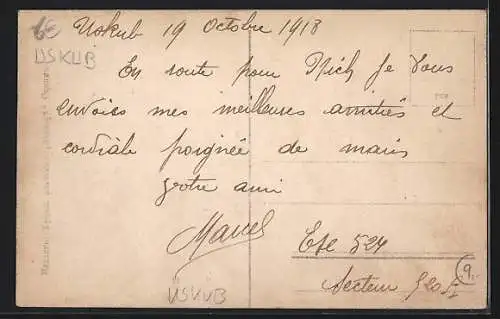 Uskub 19 Octobre 1918
USKUB
En route pour Nich Je Vous
envoies mes meilleures amitiés et
cordiale poignée de mains
Votre ami
Marcel
Ete 524
Secteur 520
USKUB
9